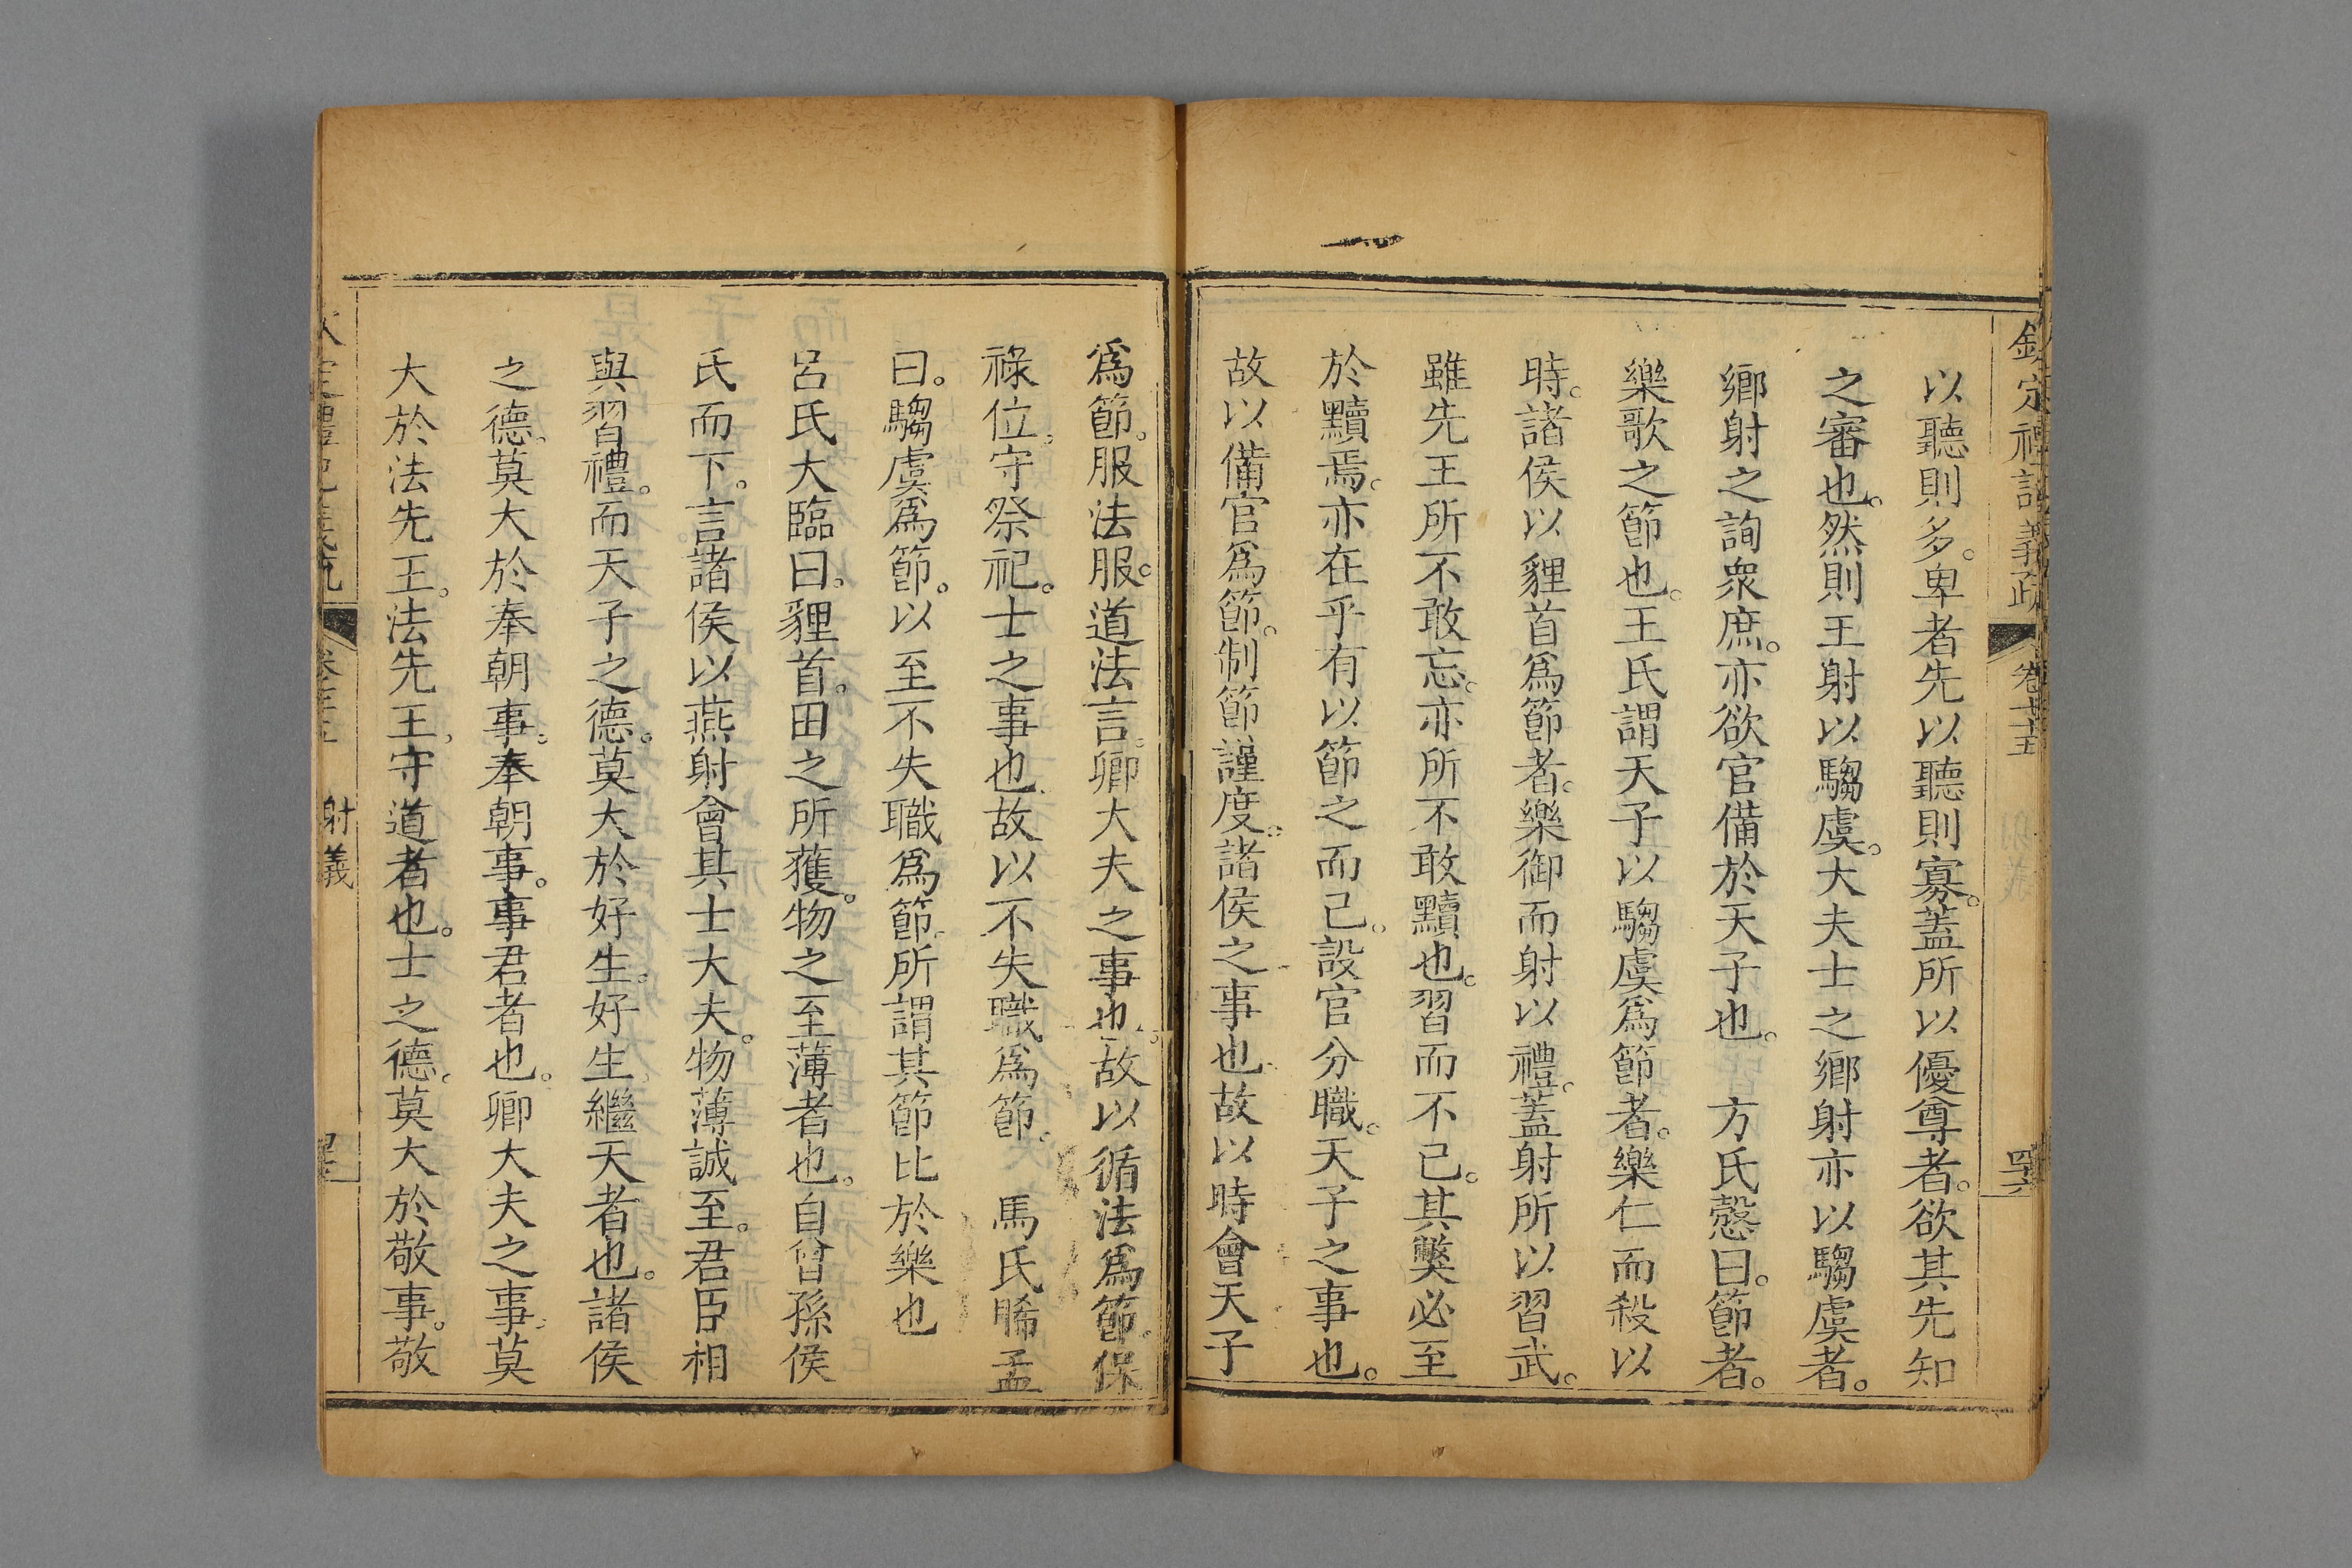 欽定禮記義疏 卷七十五 四六
以聽則多。卑者先以聽則寡。蓋所以優尊者。欲其先知
之審也。然則王射以騶虞。大夫士之鄉射亦以騶虞者。
鄉射之詢衆庶。亦欲官備於天子也。 方氏慤曰。節者。
樂歌之節也。王氏謂天子以騶虞爲節者。樂仁而殺以
時。諸侯以貍首爲節者。樂御而射以禮。蓋射所以習武。
雖先王所不敢忘。亦所不敢黷也。習而不已。其獘必至
於黷焉。亦在乎有以節之而已。設官分職。天子之事也。
故以備官爲節。制節謹度。諸侯之事也故以時會天子
爲節。服法服。道法言。卿大夫之事也。故以循法爲節。保
祿位。守祭祀。士之事也。故以不失職爲節。 馬氏晞孟
曰。騶虞爲節。以至不失職爲節。所謂其節比於樂也
呂氏大臨曰。貍首。田之所獲。物之至薄者也。自曾孫侯
氏而下。言諸侯以燕射會其士大夫。物薄誠至。君臣相
與習禮。而天子之德。莫大於好生。好生繼天者也。諸侯
之德。莫大於奉朝事。奉朝事。事君者也。卿大夫之事。莫
大於法先王。法先王。守道者也。士之德。莫大於敬事。敬
射義